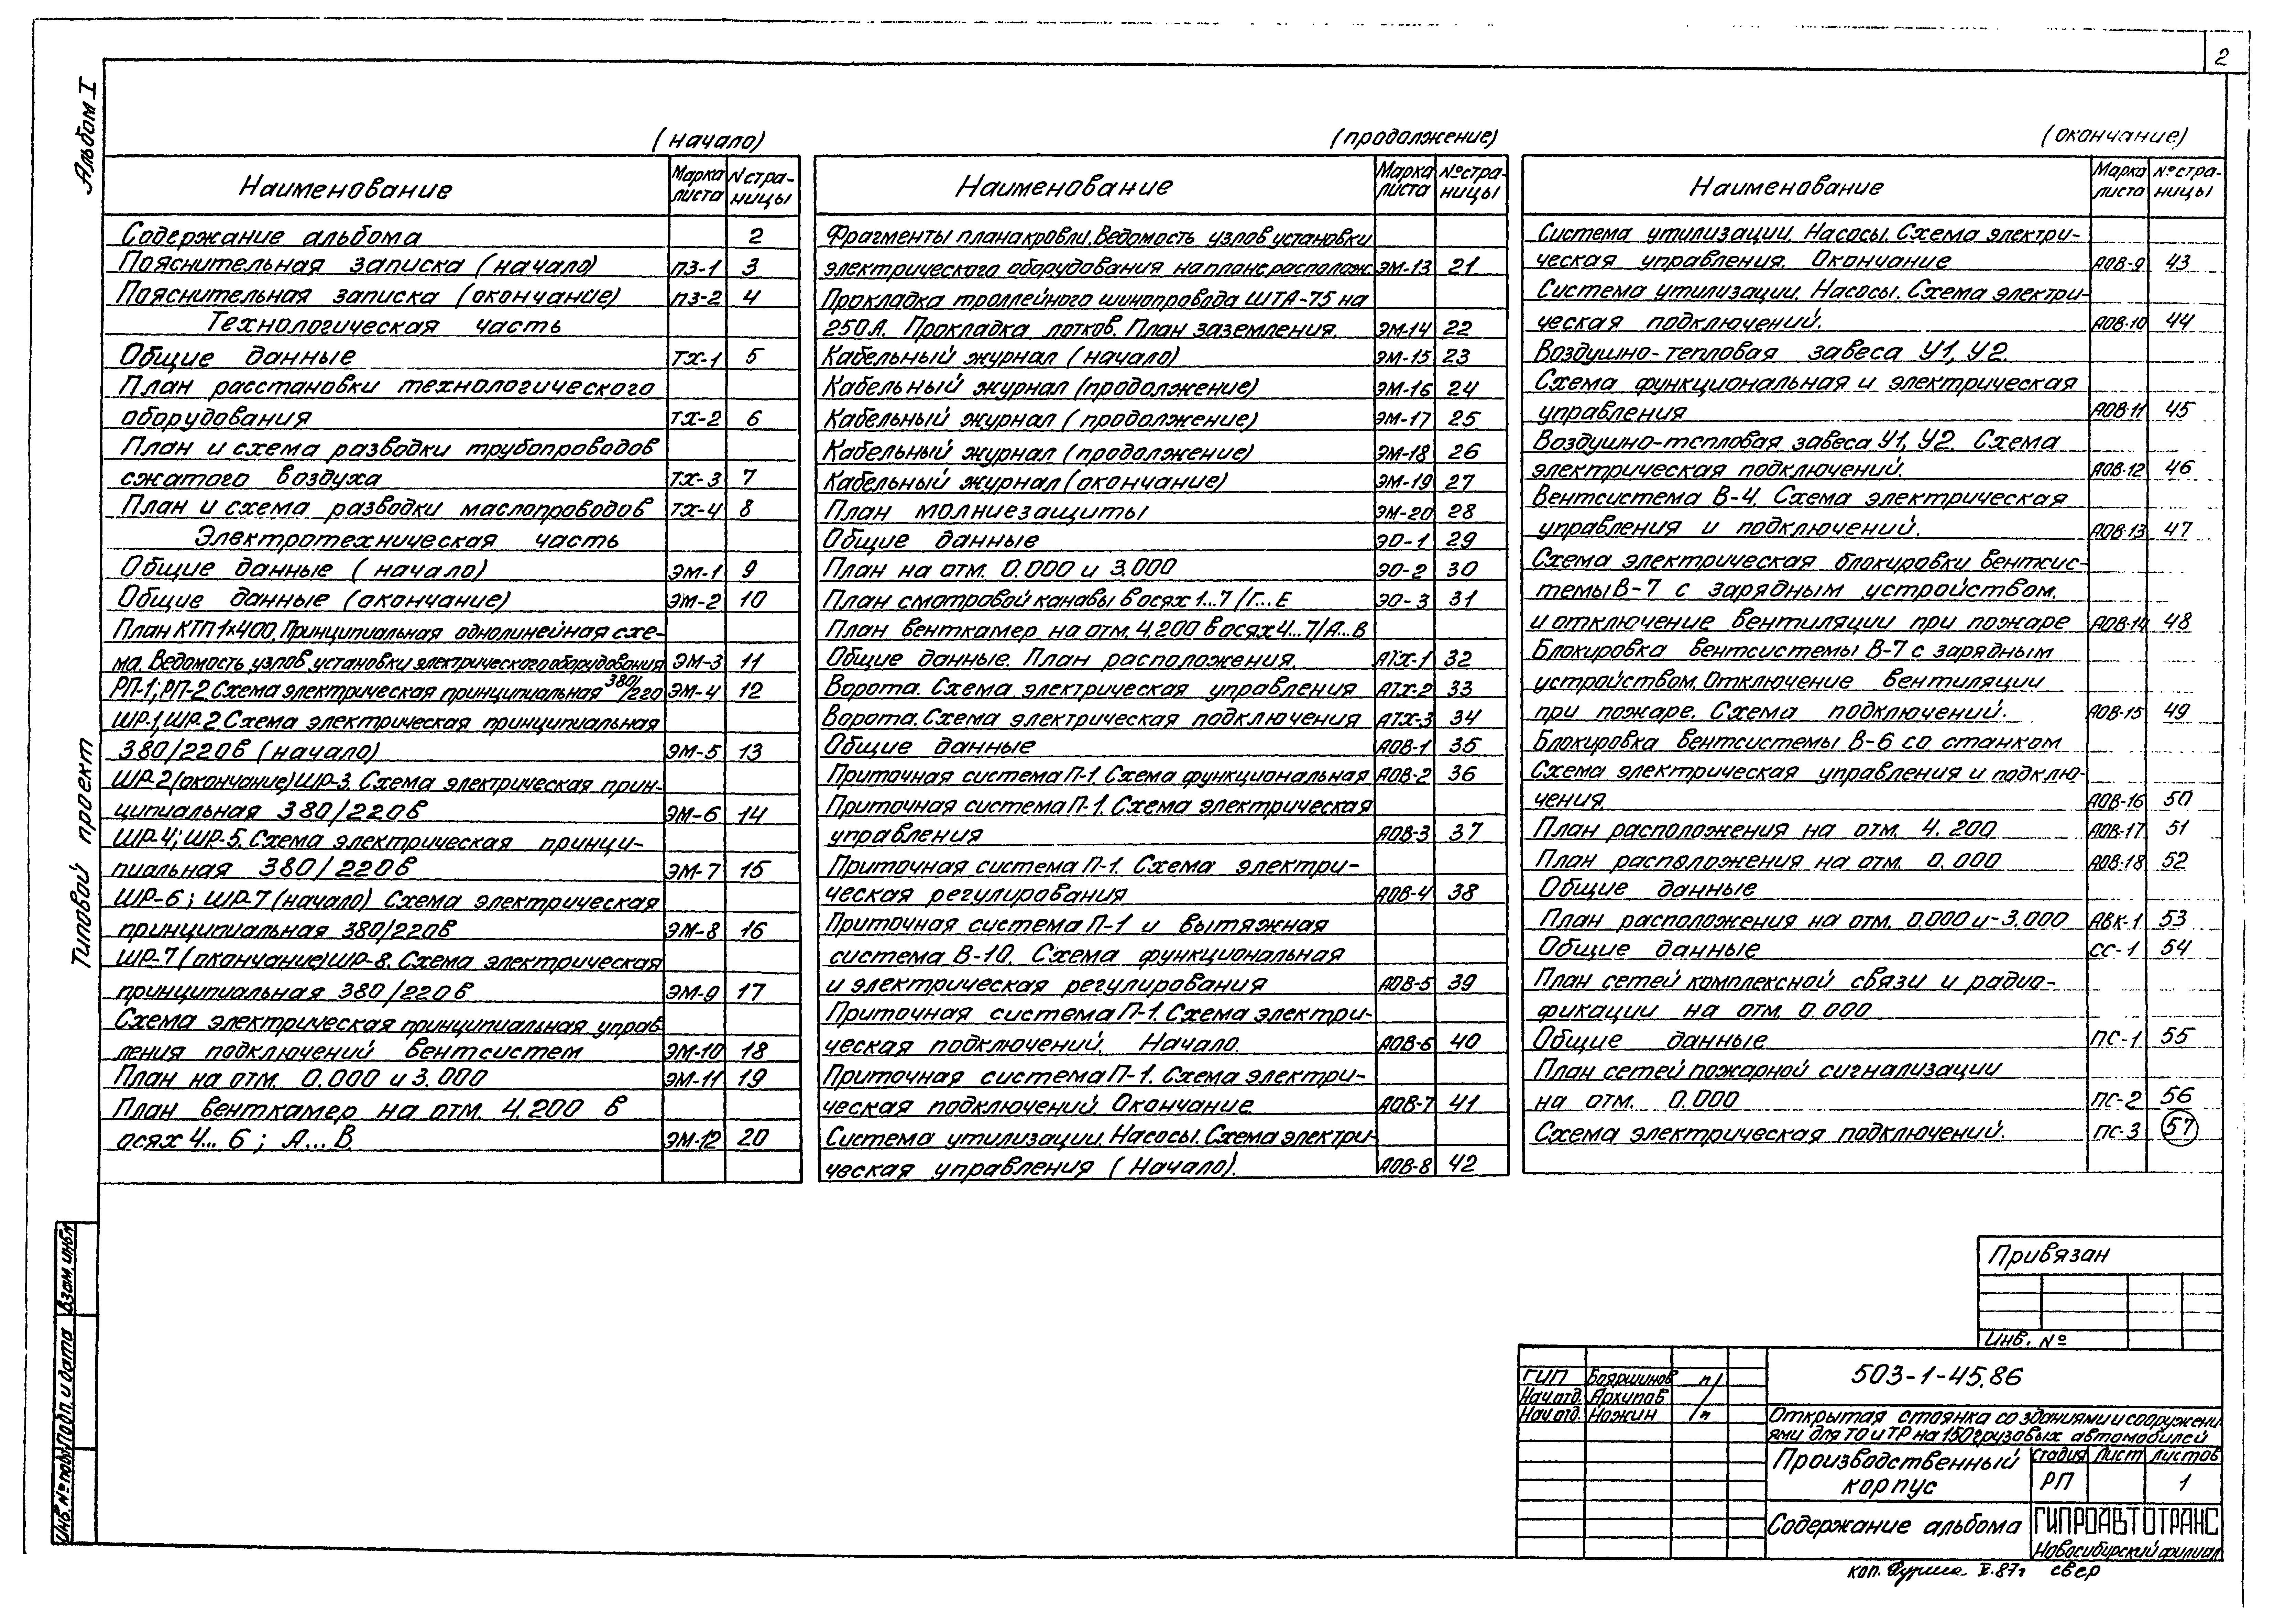 2
Альбом I
(начало)
Наименование Марка листа N стра-ницы
Содержание альбома 2
Пояснительная записка (начало) ПЗ-1 3
Пояснительная записка (окончание) ПЗ-2 4
Технологическая часть
Общие данные ТХ-1 5
План расстановки технологического
оборудования ТХ-2 6
План и схема разводки трубопроводов
сжатого воздуха ТХ-3 7
План и схема разводки маслопроводов ТХ-4 8
Электротехническая часть
Общие данные (начало) ЭМ-1 9
Общие данные (окончание) ЭМ-2 10
План КТП 1×400. Принципиальная однолинейная схе-
ма. Ведомость узлов установки электрического оборудования ЭМ-3 11
РП-1; РП-2 Схема электрическая принципиальная 380/220 ЭМ-4 12
ШР-1, ШР-2. Схема электрическая принципиальная
380/220в (начало) ЭМ-5 13
ШР-2 (окончание) ШР-3. Схема электрическая прин-
ципиальная 380/220в ЭМ-6 14
ШР-4; ШР-5. Схема электрическая принци-
пиальная 380/220в ЭМ-7 15
ШР-6; ШР-7 (начало) Схема электрическая
принципиальная 380/220в ЭМ-8 16
ШР-7 (окончание) ШР-8. Схема электрическая
принципиальная 380/220в ЭМ-9 17
Схема электрическая принципиальная управ
ления подключений вентсистем ЭМ-10 18
План на отм. 0.000 и 3.000 ЭМ-11 19
План венткамер на отм. 4.200 в
осях 4...6; А...В. ЭМ-12 20
(продолжение)
Наименование Марка листа №стра-ницы
Фрагменты плана кровли. Ведомость узлов установки
электрического оборудования на плане располож. ЭМ-13 21
Прокладка троллейного шинопровода ШТА-75 на
250А. Прокладка лотков. План заземления. ЭМ-14 22
Кабельный журнал (начало) ЭМ-15 23
Кабельный журнал (продолжение) ЭМ-16 24
Кабельный журнал (продолжение) ЭМ-17 25
Кабельный журнал (продолжение) ЭМ-18 26
Кабельный журнал (окончание) ЭМ-19 27
План молниезащиты ЭМ-20 28
Общие данные ЭО-1 29
План на отм. 0.000 и 3.000 ЭО-2 30
План смотровой канавы в осях 1...7/Г...Е ЭО-3 31
План венткамер на отм. 4.200 в осях 4...7/А...В
Общие данные. План расположения. АТХ-1 32
Ворота. Схема электрическая управления АТХ-2 33
Ворота. Схема электрическая подключения АТХ-3 34
Общие данные АОВ-1 35
Приточная система П-1. Схема функциональная АОВ-2 36
Приточная система П-1. Схема электрическая
управления АОВ-3 37
Приточная система П-1. Схема электри-
ческая регулирования АОВ-4 38
Приточная система П-1 и вытяжная
система В-10. Схема функциональная
и электрическая регулирования АОВ-5 39
Приточная система П-1. Схема электри-
ческая подключений. Начало. АОВ-6 40
Приточная система П-1. Схема электри-
ческая подключений. Окончание АОВ-7 41
Система утилизации. Насосы. Схема электри-
ческая управления (Начало). АОВ-8 42
(окончание)
Наименование Марка листа №стра-ницы
Система утилизации. Насосы. Схема электри-
ческая управления. Окончание АОВ-9 43
Система утилизации. Насосы. Схема электри-
ческая подключений. АОВ-10 44
Воздушно-тепловая завеса У1, У2.
Схема функциональная и электрическая
управления АОВ-11 45
Воздушно-тепловая завеса У1, У2. Схема
электрическая подключений. АОВ-12 46
Вентсистема В-4. Схема электрическая
управления и подключений. АОВ-13 47
Схема электрическая блокировки вентсис-
темы В-7 с зарядным устройством.
и отключение вентиляции при пожаре АОВ-14 48
Блокировка вентсистемы В-7 с зарядным
устройством. Отключение вентиляции
при пожаре. Схема подключений. АОВ-15 49
Блокировка вентсистемы В-6 со станком
Схема электрическая управления и подклю-
чения АОВ-16 50
План расположения на отм. 4.200 АОВ-17 51
План расположения на отм. 0.000 АОВ-18 52
Общие данные
План расположения на отм. 0.000 и -3.000 АВК-1 53
Общие данные СС-1 54
План сетей комплексной связи и радио-
фикации на отм. 0.000
Общие данные ПС-1 55
План сетей пожарной сигнализации
на отм. 0.000 ПС-2 56
Схема электрическая подключений. ПС-3 57
Типовой проект
Взам. инв.№
Подп. и дата
Инв.№ подл.
Привязан
Инв. №
ГИП Бояршинов
Нач.отд. Архипов
Нач.отд. Ножин
503-1-45.86
Открытая стоянка со зданиями и сооружени
ями для ТО и ТР на 150 грузовых автомобилей
Производственный корпус
Стадия Лист Листов
РП 1
Содержание альбома
ГИПРОАВТОТРАНС
Новосибирский филиал
коп. V.87г свер